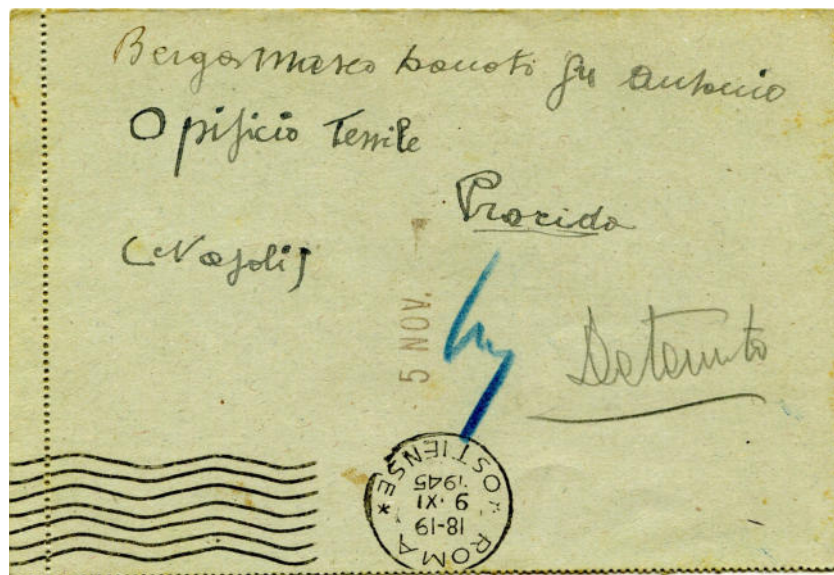 Bergamasco Donato fu Antonio
Opificio Tessile
Procida
(Napoli)
5 NOV.
Detenuto
* ROMA OSTIENSE *
18-19
9·XI
1945